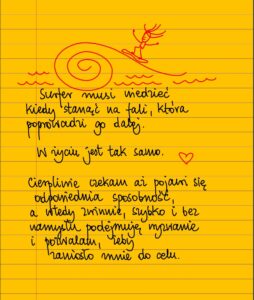 Surfer musi wiedzieć
kiedy stanąć na fali, która
poprowadzi go dalej.
W życiu jest tak samo.
Cierpliwie czekam aż pojawi się
odpowiednia sposobność,
a wtedy zwinnie, szybko i bez
namysłu podejmuję wyzwanie
i pozwalam, żeby
zaniosło mnie do celu.